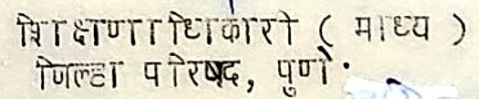 शिक्षणाधिकारी ( माध्य )
जिल्हा परिषद, पुणे.